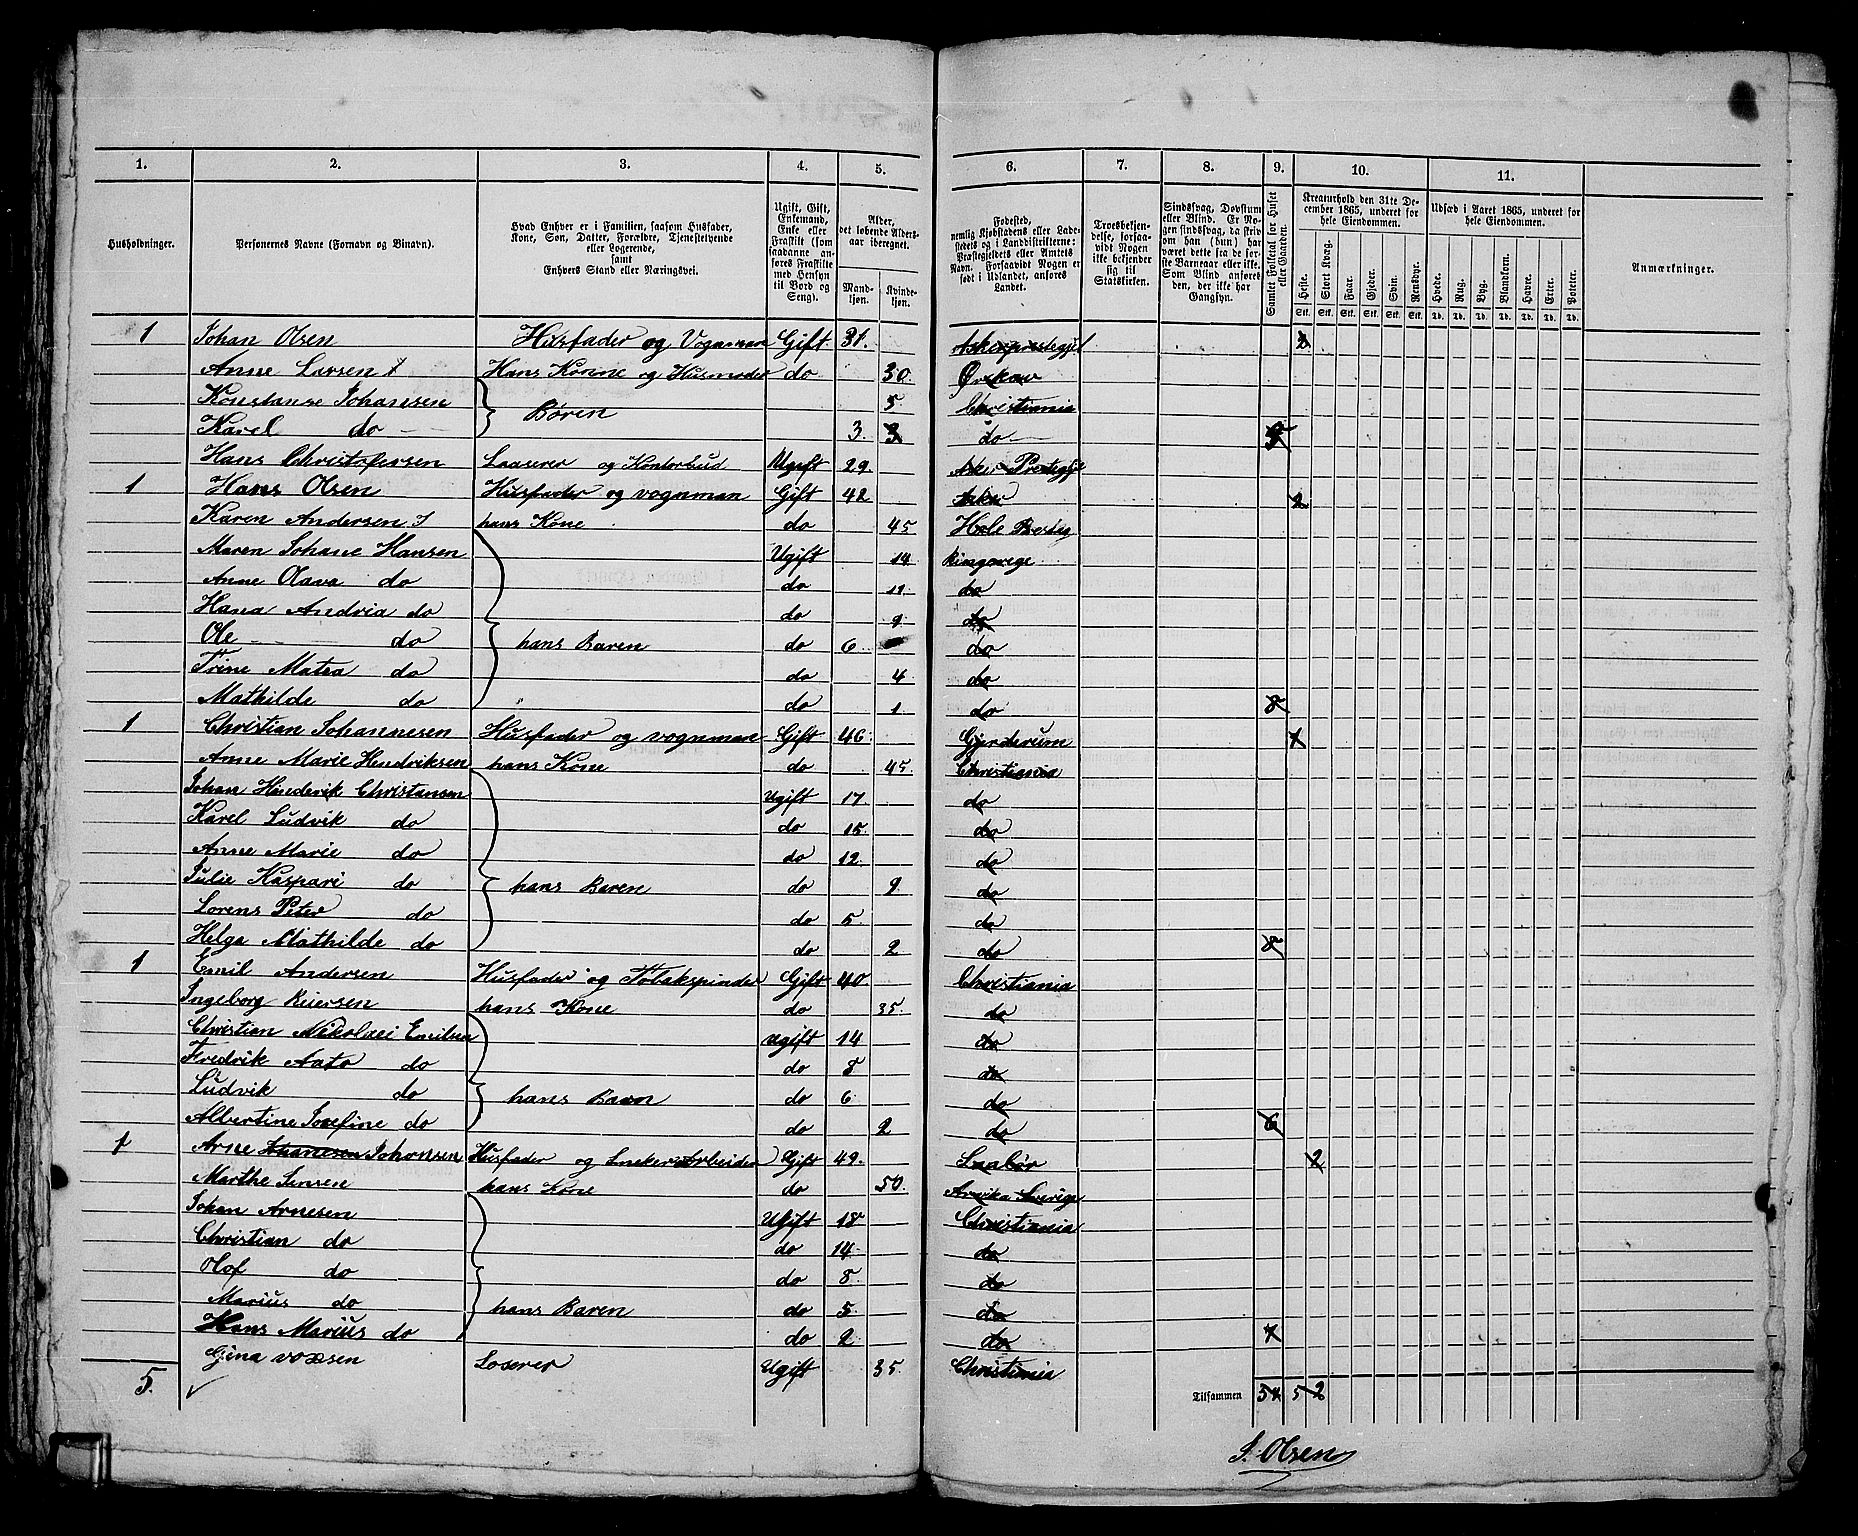 1. 2. 3. 4. 5. 6. 7. 8. 9. 10. 11.
Husholdninger.
Personernes Navne (Fornavn og Binavn).
Hvad Enhver er i Familien, saasom Husfader,
Kone, Søn, Datter, Forældre, Tjenestetyende
eller Logerende,
samt
Enhvers Stand eller Næringsvei.
Ugift, Gift,
Enkemand,
Enke eller
Fraskilt (som
saadanne an-
føres Fraskilte
med Hensyn
til Bord og
Seng).
Alder,
det løbende Alders-
aar iberegnet.
Mand-
kjøn.
Kvinde-
kjøn.
Fødested,
nemlig Kjøbstadens eller Lade-
stedets og i Landdistrikterne:
Præstegjeldets eller Amtets
Navn. Forsaavidt Nogen er
født i Udlandet, anføres
Landet.
Troesbekjen-
delse, forsaa-
vidt Nogen
ikke bekjender
sig til
Statskirken.
Sindssvag, Døvstum
eller Blind. Er No-
gen sindssvag, da skriv
om han (hun) har
været dette fra de før-
ste Barneaar eller ikke.
Som Blind anføres
den, der ikke har
Gangsyn.
Samlet Folketal for Huset
eller Gaarden.
Kreaturhold den 31te De-
cember 1865, underet for
hele Eiendommen.
Heste. Stort Kvæg. Faar. Gjeder. Svin. Rensdyr.
Stk. Stk. Stk. Stk. Stk. Stk.
Udsæd i Aaret 1865, underet for
hele Eiendommen.
Hvede. Rug. Byg. Blandkorn. Havre. Erter. Poteter.
Td. Td. Td. Td. Td. Td. Td.
Anmærkninger.
1 Johan Olsen Husfader og Vognman Gift 31. Askerprestegjel 2
Anne Larsen Hans Konne og Husmoder do 30.
Konstanse Johansen 5 Christiania
Karel do Børen 3. 3 do
Hans Christofersen Laaserer og Kontorbud Ugift 29. Asker Prestegjel
1 Hans Olsen Husfader og vognman Gift 42 Asker 2
Karen Andersen hans Kone do 45 Hole
Maren Johane Hansen Ugift 14 Ringerege
Anne Olava do do 11. do
Hana Andria do do 9. do
Ole do hans Baren do 6 do
Trine Matea do do 4 do
Mathilde do do 1. do 8
1 Christian Johannesen Husfader og vognman Gift 46. Gjerderum 1
Anne Marie Hendriksen hans Kone do 45. Christiania
Johan Henderik Christansen Ugift 17 do
Karel Ludvik do do 15. do
Anne Marie do do 12. do
Julie Kaspari do hans Baren do 9. do
Lorens Peter do do 5. do
Helga Mathilde do do 2 do 8
1 Emil Andersen Husfader og Tobakspinder Gift 40. Christiania
Ingeborg hans Kone do 35. do
Christian Nikolaei Emilsen ugift 14 do
Fredrik do do 8 do
Ludvik do hans Baren do 6. do
Albertine Josefine do do 2 do 6
1 Arne Johansen Husfader og Sneker Arbeider Gift 49. 2
Marthe Jensen hans Kone do 50. Arvika Sverige
Johan Arnesen Ugift 18 Christiania
Christian do do 14. do
Olof do do 8. do
Marius do hans Baren do 5. do
Hans Marius do do 2 do 7
Gina Loserer Ugift 35. Christiania
5. Tilsammen 5 2
J. Olsen